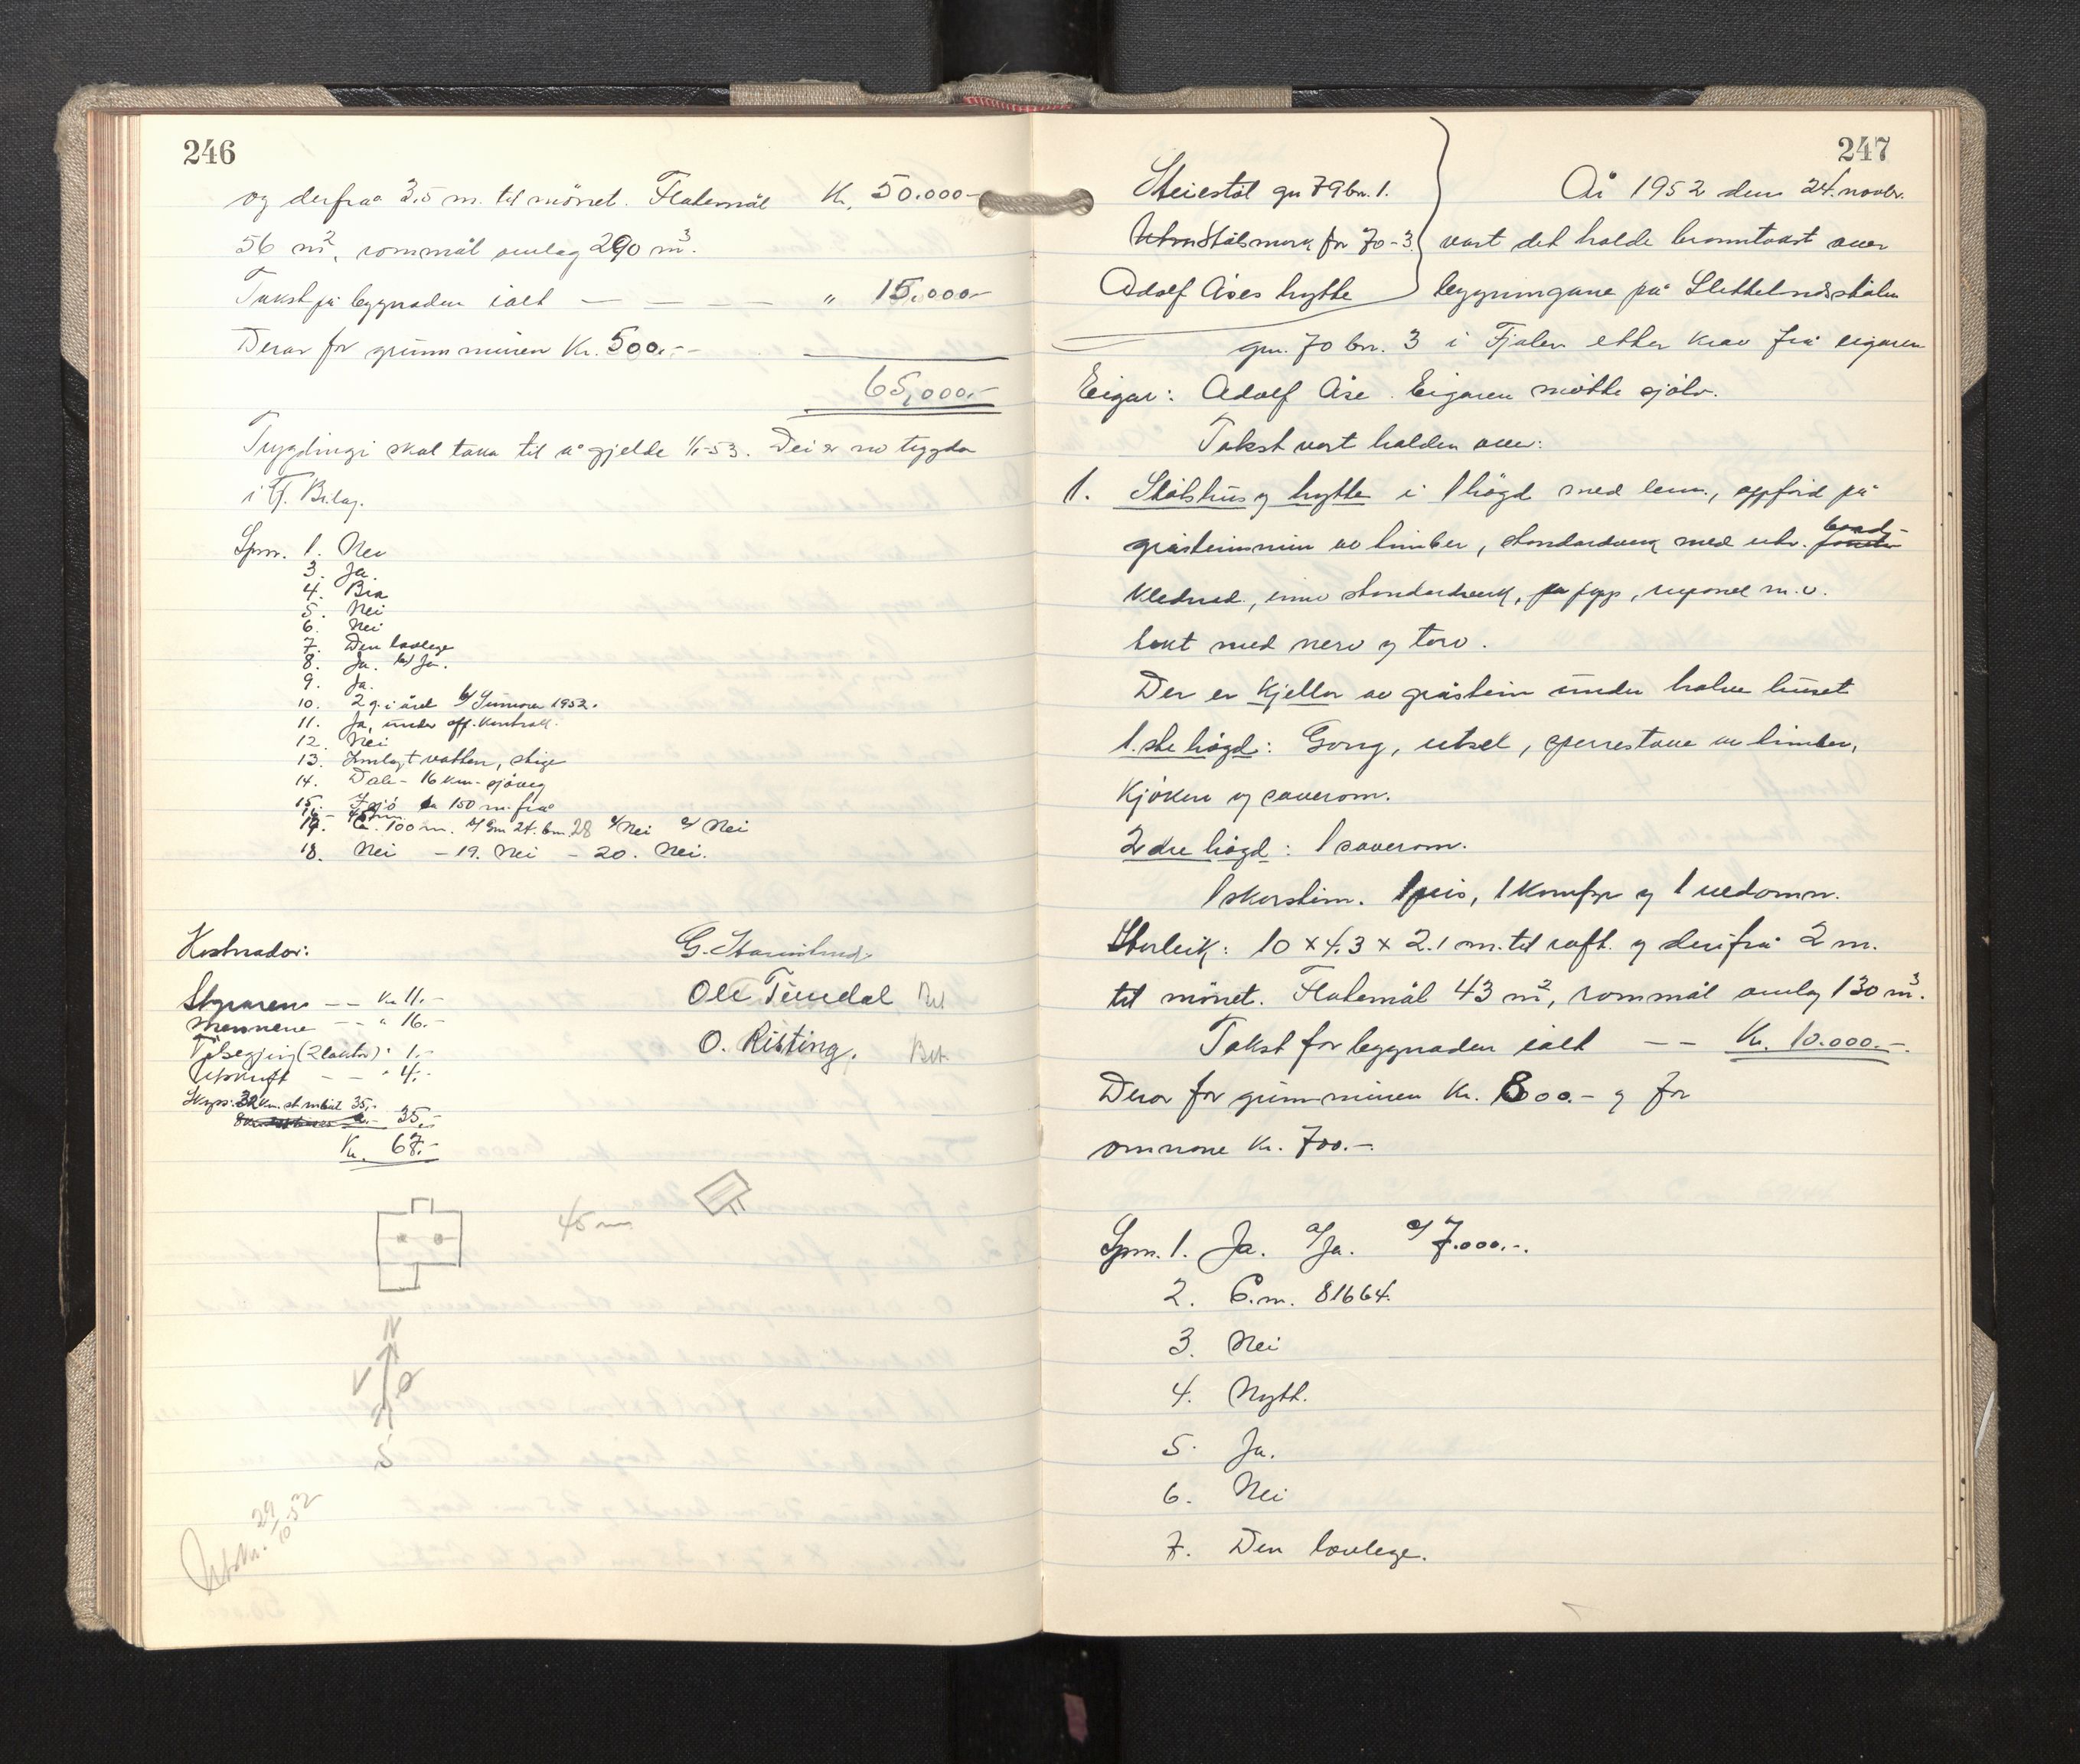 246
og derfra 3,5 m. til mönet. Flatemål Kr. 50.000-
56 m², rommål omlag 290 m³.
Takst på bygnaden ialt — — — — " 15.000-
Derav for grunnmuren Kr. 500.--
65,000.-
Trygdingi skal taka til å gjelde 1/1-53. Dei er no trygda
i Bilag.
Spm. 1. Nei
3. Ja.
4. Bra
5. Nei
6. Nei
7. Den lovlege
8. Ja. b/ Ja.
9. Ja.
10. 2 g. i året b/ Sumaren 1952.
11. Ja, under off. kontroll.
12. Nei
13. Innlagt vatten, stige
14. Dale - 16 km. sjöveg
15. I sjö ca 150 m. frå
17. Ca. 100 m. b/ Gnr 24. bnr. 28 c/ Nei d/ Nei
18. Nei - 19. Nei - 20. Nei.
Kostnader:
Styraren -- Kr 11.-
Mennene -- " 16.-
Tilsegjing (2 takstm) " 1.-
Utskrift -- " 4.-
Skyss: 32 km. m/båt 35,-
35,-
Kr. 67.-
Ole Tundal Bet
O. Risting. Bet.
45 m
N
V Ø
S
Utskr. 29/10-52
247
Steiestöl gn 79 bn. 1.
for 70-3
Adolf Åses hytte
År 1952 den 24. novbr.
vart det halde branntakst over
bygningane på Slettelndsstölen
gnr. 70 bnr. 3 i Fjaler etter krav frå eigaren
Eigar: Adolf Åse. Eigaren mötte sjölv.
Takst vart halden over:
1. Stölshus og hytte i 1 högd med lem, oppförd på
gråsteinsmur av timber, standardverk med utv. bord-
klednad, innv standardverk, papp, m.v.
tekt med nevr og torv.
Der er kjellar av gråstein under halve huset
1.ste högd: Gong, utsel, sperrestove av timber,
kjöken og soverom.
2dre högd: 1 soverom.
1 skorstein. 1 peis, 1 komfyr og 1 vedomn.
Storleik: 10 x 4.3 x 2.1 m. til raft. og derifrå 2 m.
til mönet. Flatemål 43 m², rommål omlag 130 m³.
Takst for bygnaden ialt -- Kr. 10.000.-.
Derav for grunnmuren Kr. 800.- og for
omnane Kr. 700.-.
Spm. 1. Ja. a/ Ja. c/ 7.000.-.
2. P.m. 81664.
3. Nei
4. Nytt.
5. Ja.
6. Nei
7. Den lovlege.